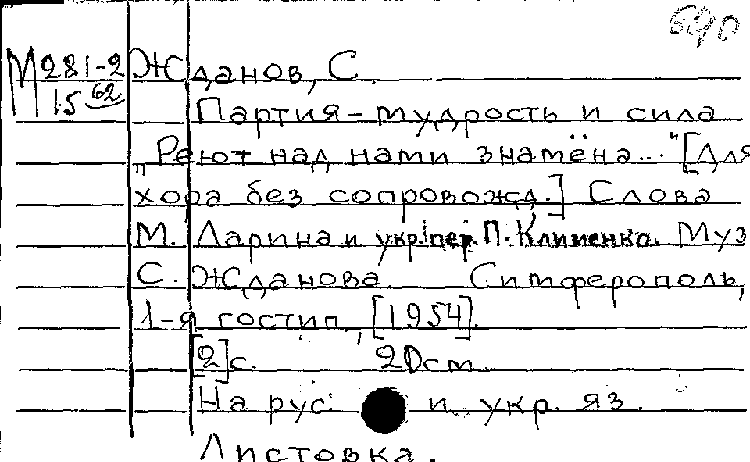 690
М281-2 Жданов, С.
15 62
Партия - мудрость и сила
„Реют над нами знамёна..." [Для
хора без сопровожд.] Слова
М. Ларина и укр. пер. П. Клименко. Муз
С. Жданова. Симферополь,
1-я гостип., [1954].
[2]с. 20см.
На рус. и укр. яз.
Листовка.